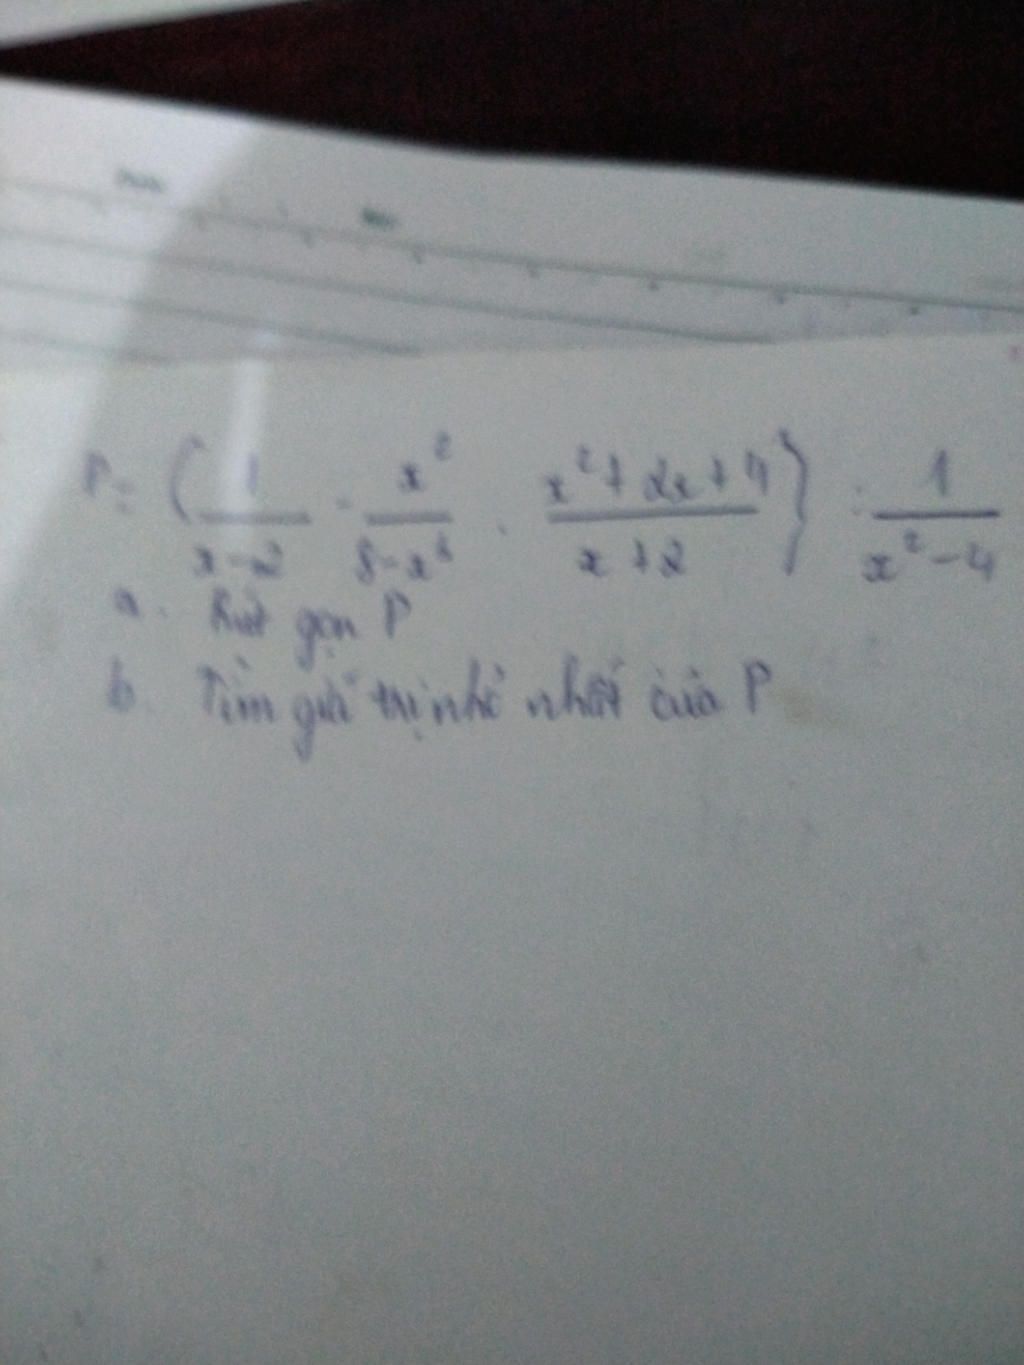 P = ( 1/(x-2) - x²/(8-x³) . (x²+2x+4)/(x+2) ) : 1/(x²-4)
a. Rút gọn P
b. Tìm giá trị nhỏ nhất của P